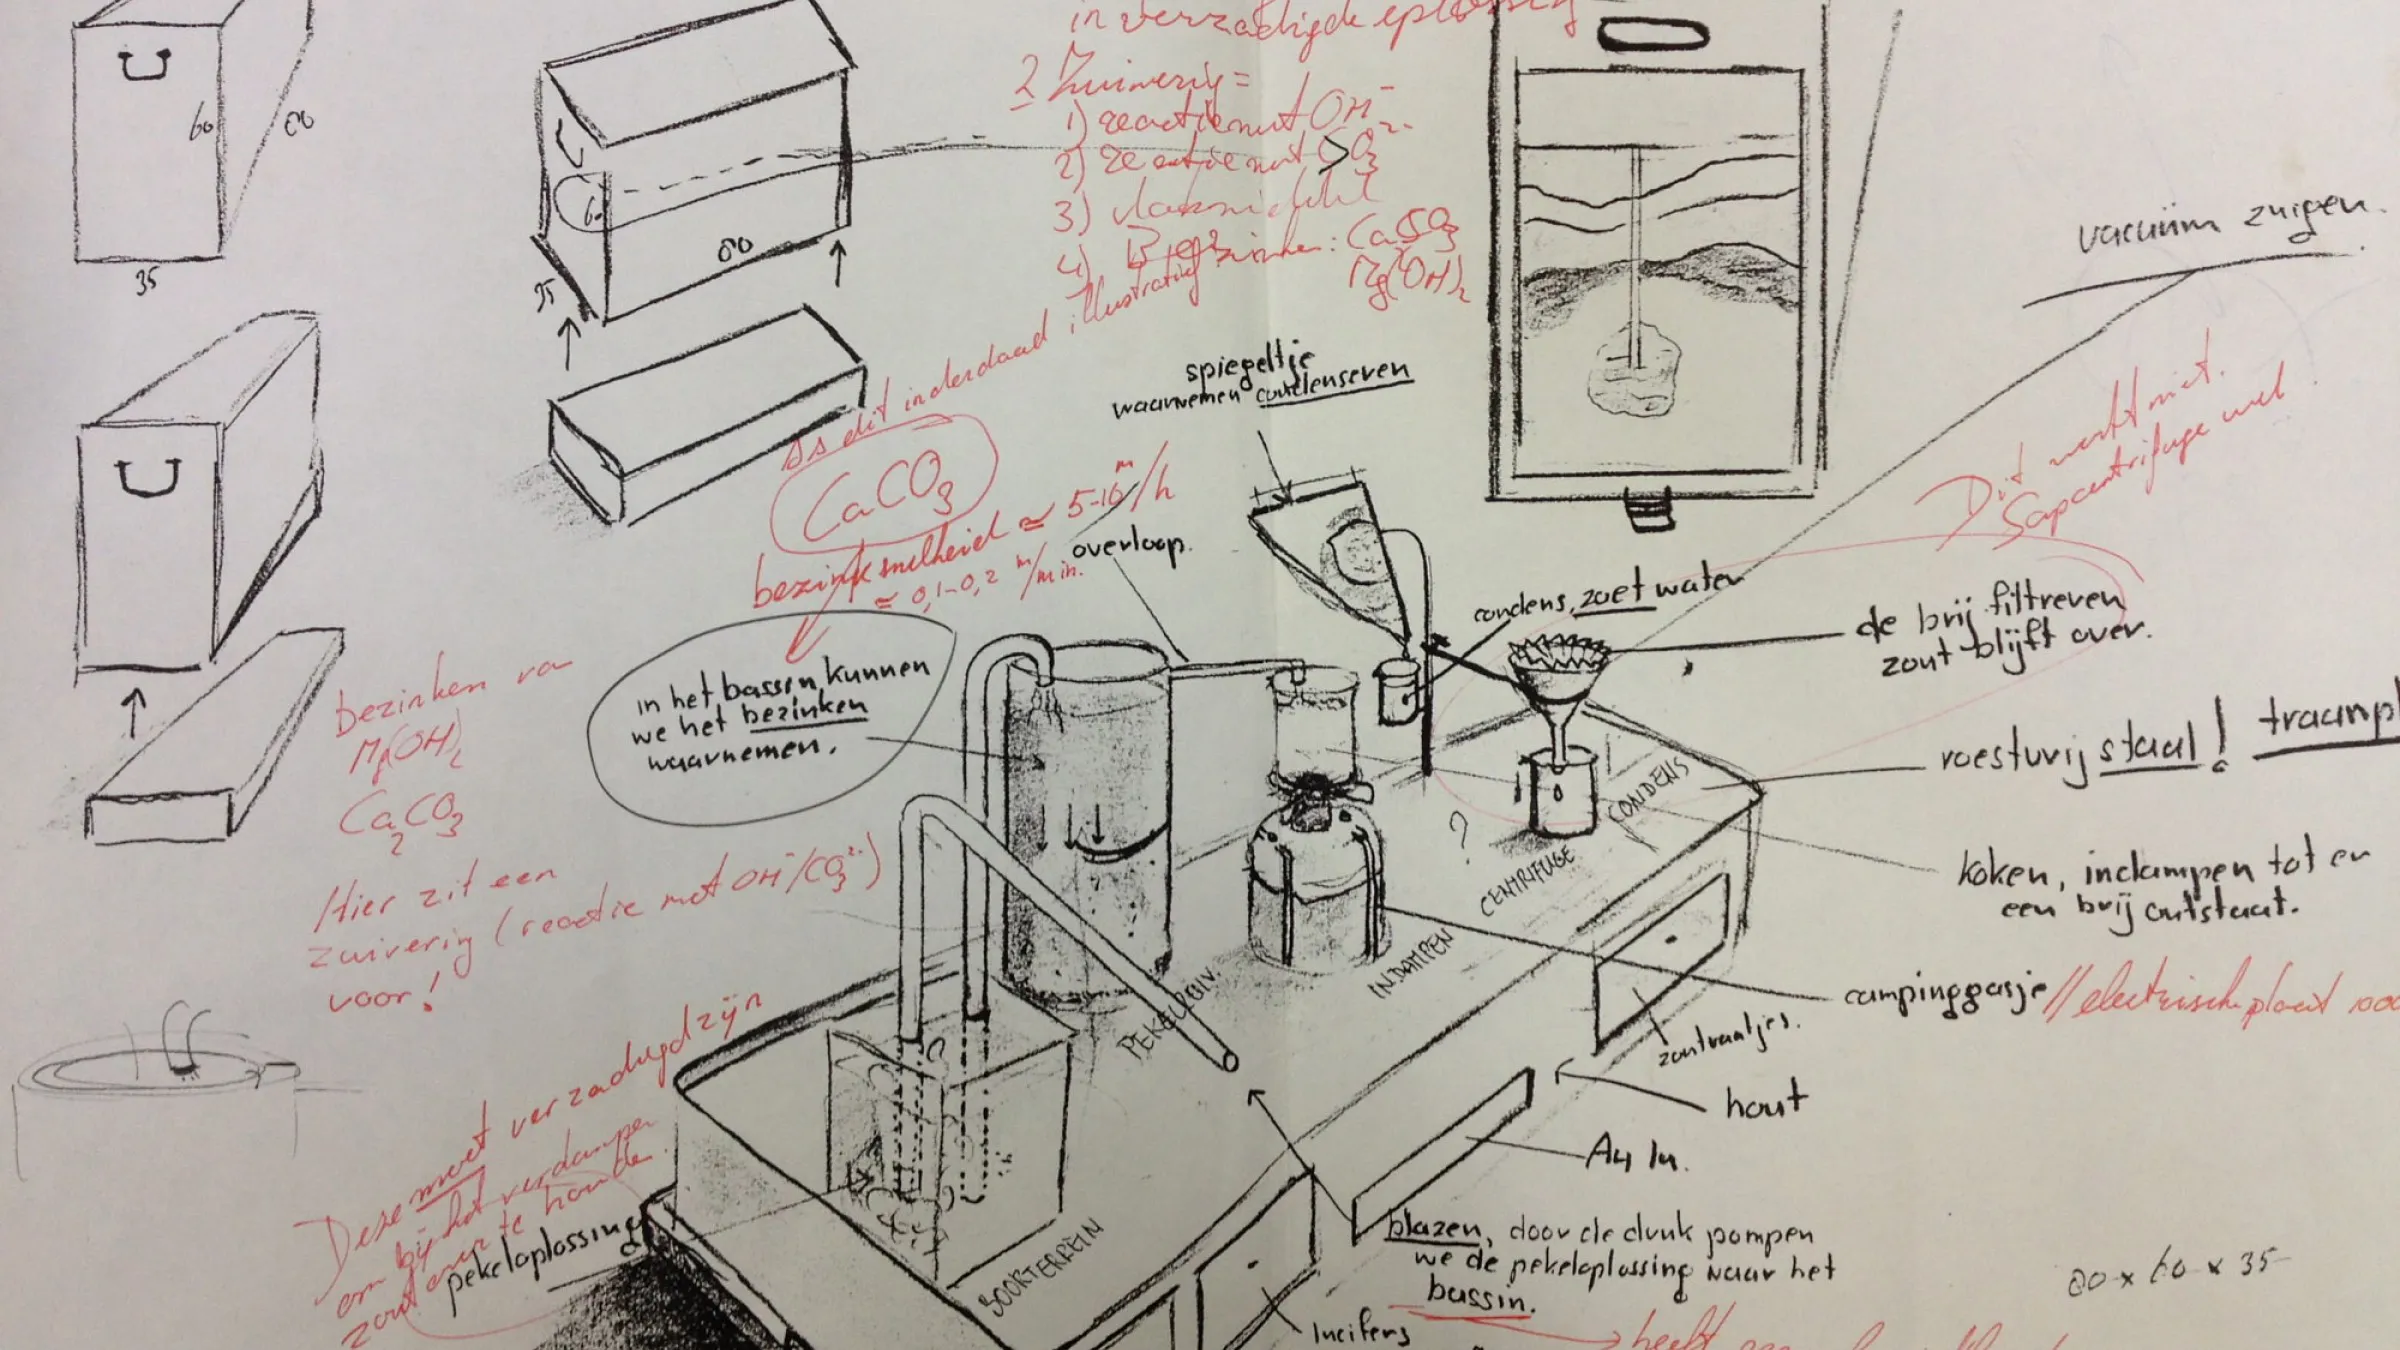 in verzadigde oplossing
2 Zuivering =
1) reactie met OH⁻
2) reactie met CO₃²⁻
3)
4) Bezinken: CaCO₃
Mg(OH)₂
60
80
35
60
80
35
Is dit inderdaad illustratief
CaCO₃
bezinksnelheid ≃ 5-10 m/h
≃ 0,1-0,2 m/min.
overloop.
spiegeltje
waarnemen condenseren
vacuüm zuigen.
Dit werkt niet.
Sapcentrifuge wel.
condens, zoet water
de brij filtreren
zout blijft over.
in het bassin kunnen
we het bezinken
waarnemen.
roestvrij staal! traanpl
koken, indampen tot er
een brij ontstaat.
campinggasje // electrische plaat
bezinken van
Mg(OH)₂
Ca₂CO₃
Hier zit een
zuivering (reactie met OH⁻/CO₃²⁻)
voor!
?
CONDENS
CENTRIFUGE
INDAMPEN
PEKELREIV.
BOORTERREIN
zoutvaatjes.
hout
A4 In.
Deze moet verzadigd zijn
om bij het verdampen
zout over te houden.
pekeloplossing
blazen, door de druk pompen
we de pekeloplossing naar het
bassin.
lucifers
80 x 60 x 35
heeft